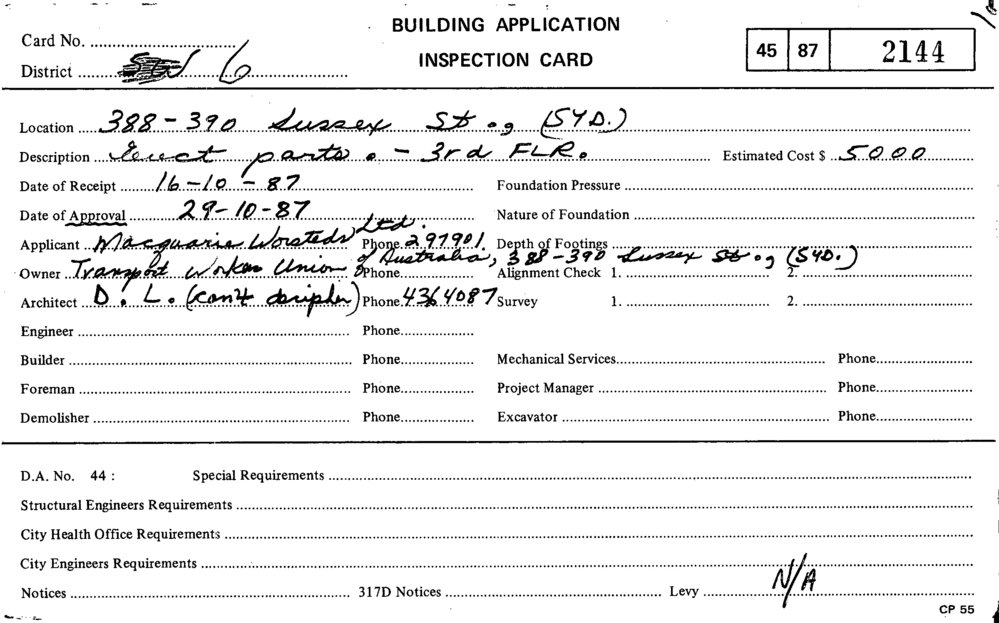 BUILDING APPLICATION
INSPECTION CARD
Card No.
District 6
45 87 2144
Location 388-390 Sussex St., (SYD.)
Description Erect parts. - 3rd FLR.
Estimated Cost $ 5000
Date of Receipt 16-10-87
Foundation Pressure
Date of Approval 29-10-87
Nature of Foundation
Applicant Macquarie Worsteds Ltd. Phone 297901
Depth of Footings
Owner Transport Workers Union of Australia, 388-390 Sussex St., (SYD.) Phone
Alignment Check 1. 2.
Architect D. L. (can't decipher) Phone 4364087
Survey 1. 2.
Engineer Phone
Builder Phone
Mechanical Services Phone
Foreman Phone
Project Manager Phone
Demolisher Phone
Excavator Phone
D.A. No. 44 : Special Requirements
Structural Engineers Requirements
City Health Office Requirements
City Engineers Requirements
Notices 317D Notices Levy N/A
CP 55